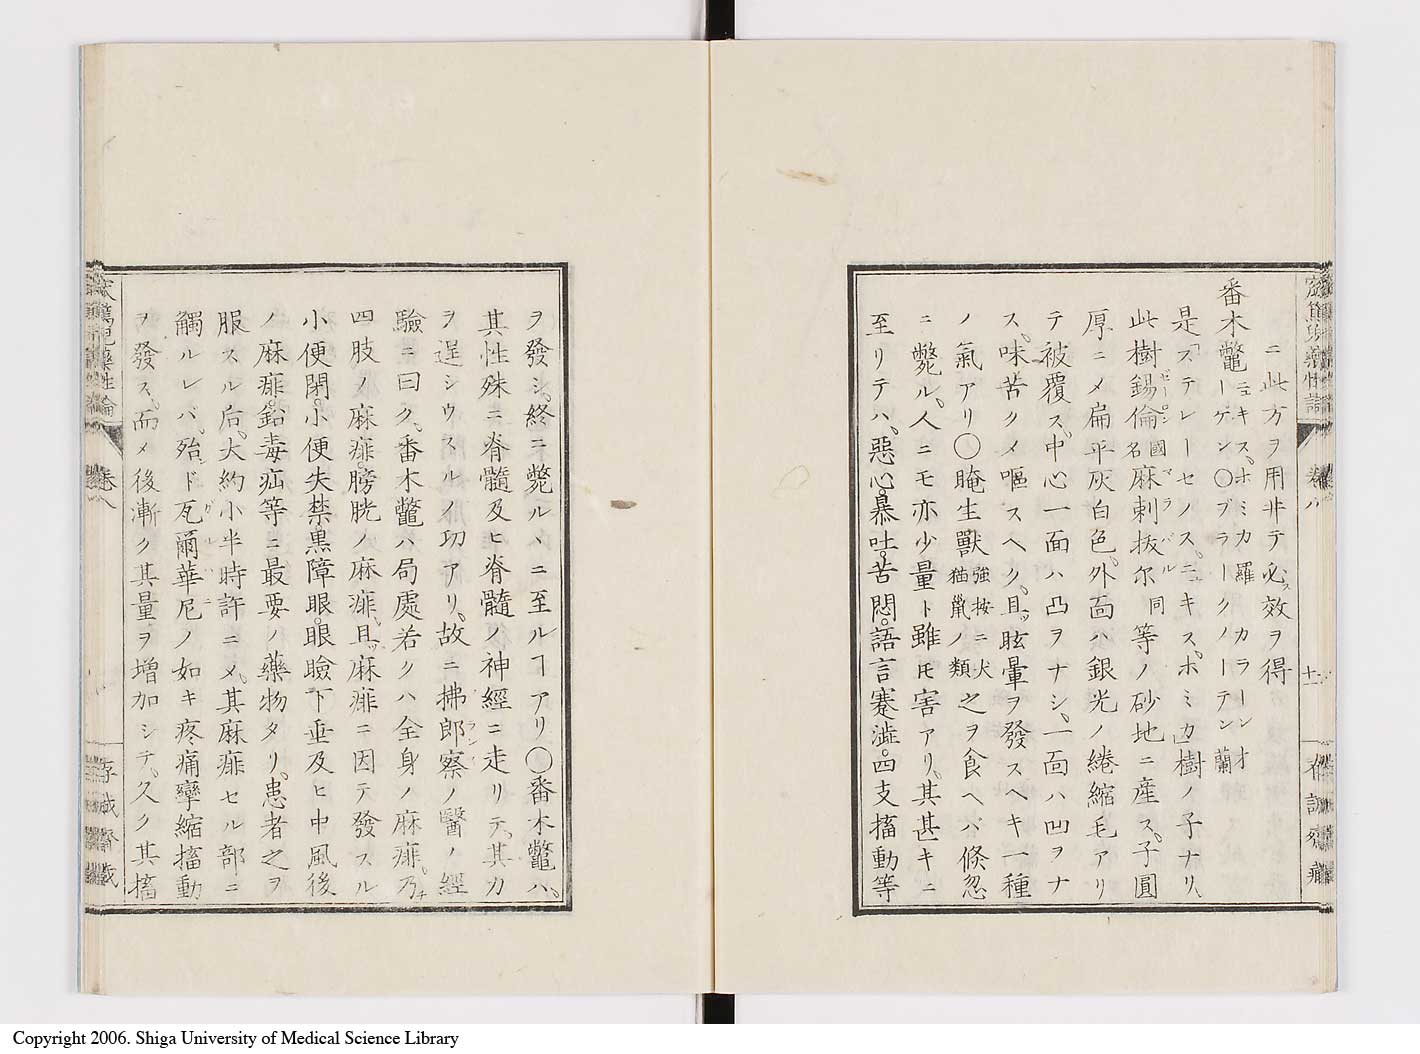 ニ此方ヲ用井テ必ス效ヲ得
番木鼈 ニュキス、ホミカ 羅 カラーンオーゲン〇ブラークノーテン 蘭
是「ステレーセノス、ニキス、ホミカ」樹ノ子ナリ、
此樹錫倫 ゼーロン 國名 麻剌拔尔 マラバル 同 等ノ砂地ニ産ス、子圓
厚ニメ扁平灰白色、外面ハ銀光ノ綣縮毛アリ
テ被覆ス、中心一面ハ凸ヲナシ、一面ハ凹ヲナ
ス、味苦クメ嘔スヘク、且ツ眩暈ヲ發スヘキ一種
ノ氣アリ〇腌生獸 強按ニ犬猫鼠ノ類 之ヲ食ヘバ倏忽
ニ斃ル、人ニモ亦少量ト雖𪜈害アリ、其甚キニ
至リテハ、惡心、暴吐、苦悶、語言蹇澁、四支搐動等
ヲ發シ、終ニ斃ルヽニ至ルヿアリ〇番木鼈ハ、
其性殊ニ脊髓及ヒ脊髓ノ神經ニ走リテ、其力
ヲ逞シウスルノ功アリ、故ニ拂郎察 フランス ノ醫ノ經
驗ニ曰ク、番木鼈ハ局處若クハ全身ノ麻痱、乃チ
四肢ノ麻痱、膀胱ノ麻痱、且ツ麻痱ニ因テ發スル
小便閉、小便失禁、黒障眼、眼瞼下垂及ヒ中風後
ノ麻痱、鉛毒疝等ニ最要ノ藥物タリ、患者之ヲ
服スル后、大約小半時許ニメ、其麻痱セル部ニ
觸ルレバ、殆ンド瓦爾華尼 ガルハニ ノ如キ疼痛攣縮搐動
ヲ發ス、而メ後漸ク其量ヲ増加シテ、久ク其搐
卷八
十一
卷八
Copyright 2006. Shiga University of Medical Science Library